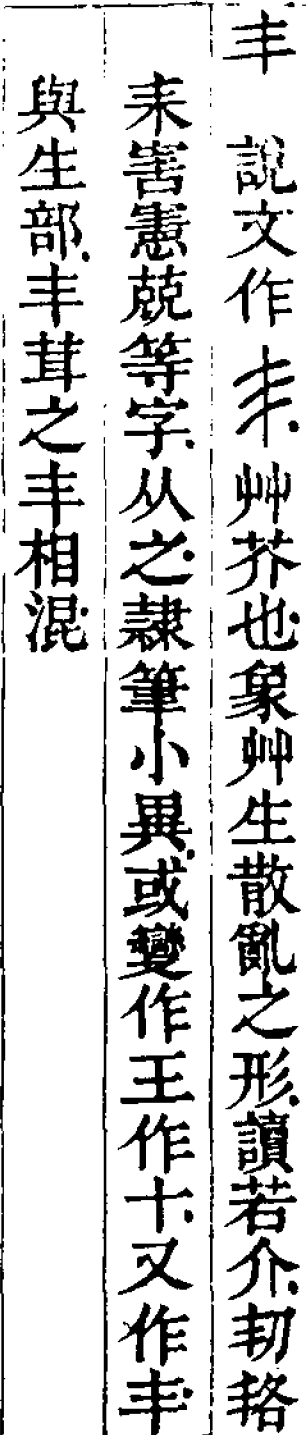 丯 說文作丯艸芥也象艸生散亂之形讀若介㓞䩹
耒害憲蔎等字从之隷筆小異或變作王作十又作丰
與生部丰茸之丰相混